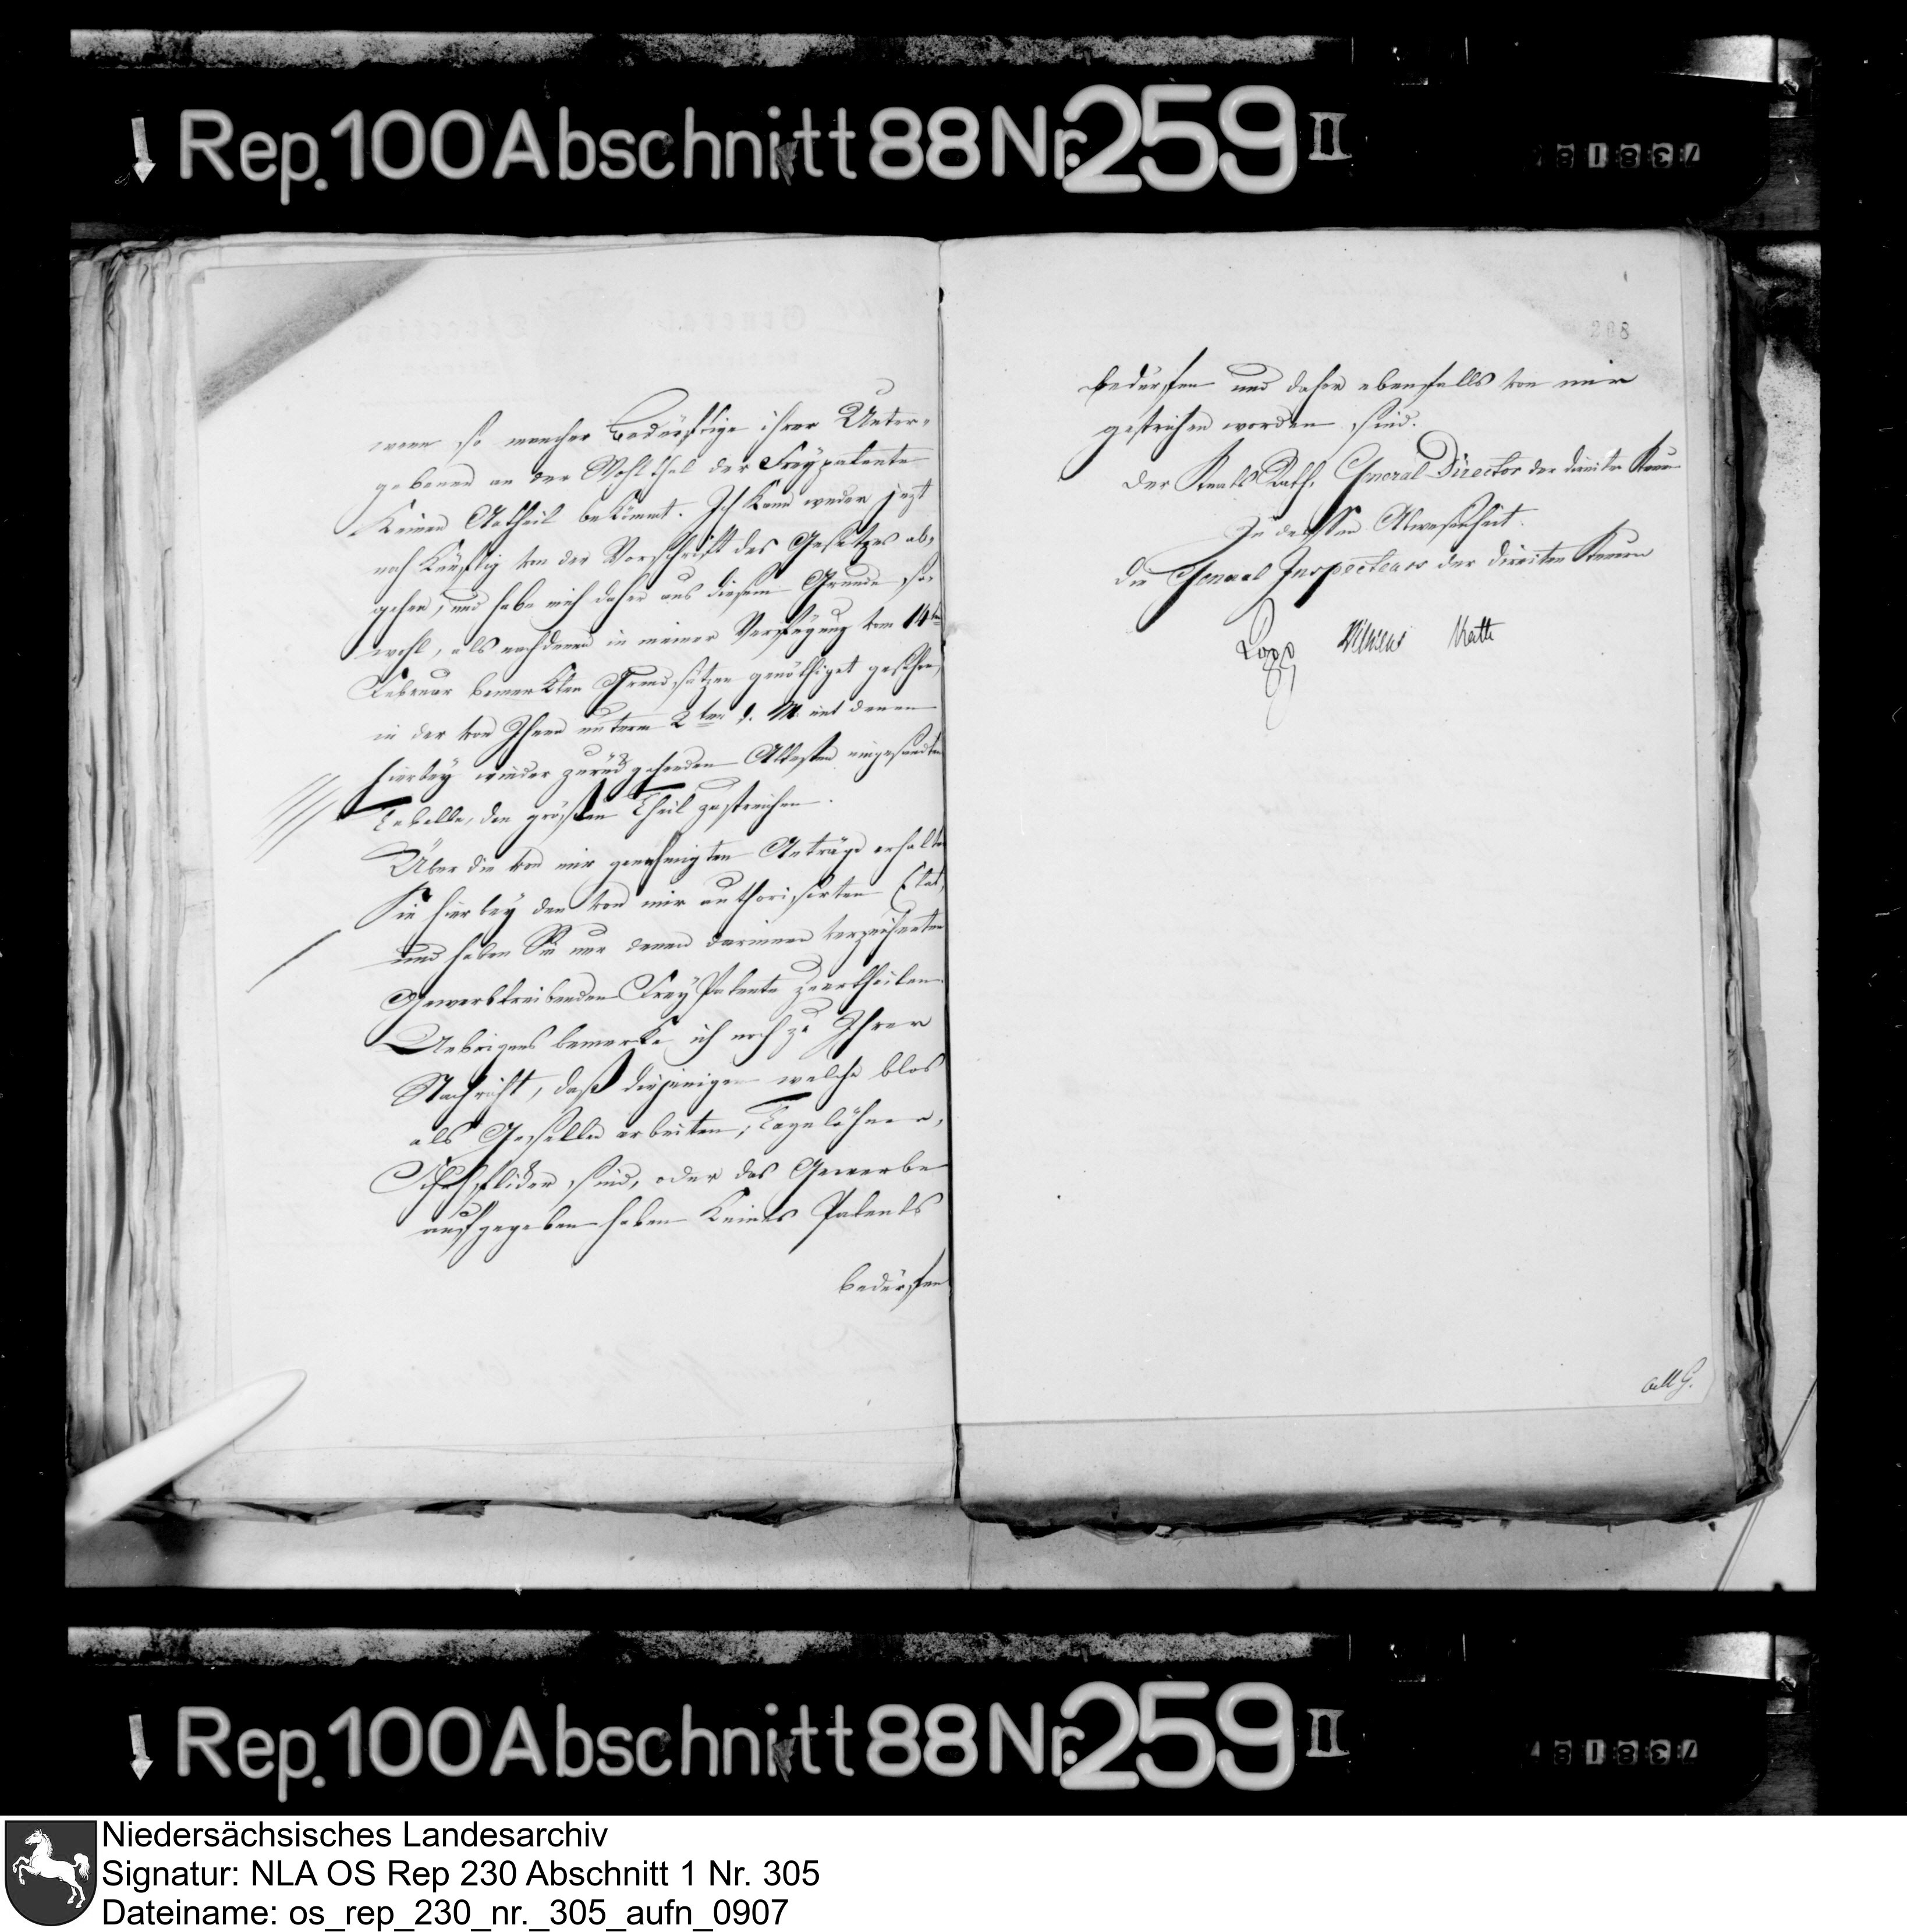 Rep. 100 Abschnitt 88 Nr. 259 II
wenn so mancher Bedürftige ihrer Unter-
gebenen an der Wohlthat der Freypatente
keinen Antheil bekömmt. Ich kann weder jezt
noch künftig von der Vorschrift des Gesetzes ab-
gehen, und habe mich daher aus diesem Grunde so-
wohl, als nach denen in meiner Verfügung vom 14ten
Februar bemerkten Grundsätzen genöthiget gesehen,
in der von Ihnen unterm 2ten d. M. mit denen
hierbey wieder zurück gehenden Attesten eingesandten
Tabelle, den größten Theil zu streichen.
Über die von mir genehmigten Anträge erhalten
Sie hierbey den von mir authorisirten Etat,
und haben Sie nur denen darinnen verzeichneten
Gewerbtreibenden Frey Patente zu ertheilen.
Uebrigens bemerke ich noch zu Ihrer
Nachricht, daß diejenigen welche blos
als Gesellen arbeiten, Tagelöhner,
Schuhflicker sind, oder das Gewerbe
aufgegeben haben keines Patents
bedürfen
208
bedürfen und daher ebenfalls von mir
gestrichen worden sind.
Der Staats Rath, General-Director der directen Steuern
In dessen Abwesenheit.
Die General Inspecteurs der directen Steuern
Rep. 100 Abschnitt 88 Nr. 259 II
Niedersächsisches Landesarchiv
Signatur: NLA OS Rep 230 Abschnitt 1 Nr. 305
Dateiname: os_rep_230_nr._305_aufn_0907